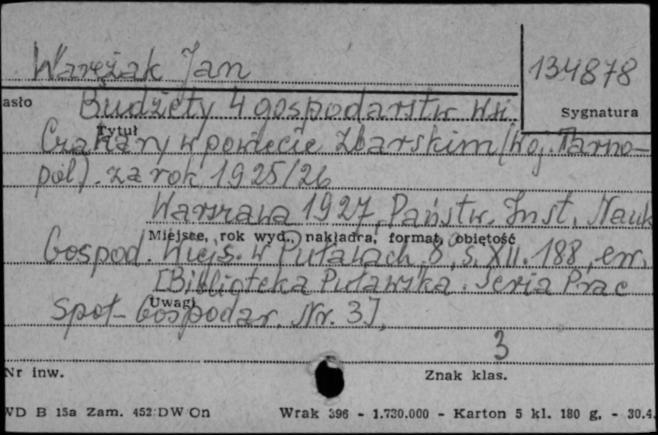 Warężak Jan
134878
asło
Budżety 4 gospodarstw wsi
Sygnatura
Tytuł
Czahary w powiecie Zbarskim (Woj. Tarno-
pol). za rok 1925/26
Warszawa 1927, Państw. Inst. Nauk
Miejsce, rok wyd., nakładca, format, objętość
Gospod. Wiejs. w Puławach 8, s. XII. 188, err.
[Biblioteka Puławska. Seria Prac
Uwagi
Społ-Gospodar. Nr. 3],
3
Nr inw.
Znak klas.
WD B 15a Zam. 452 DW On
Wrak 396 - 1.730.000 - Karton 5 kl. 180 g. - 30.4.